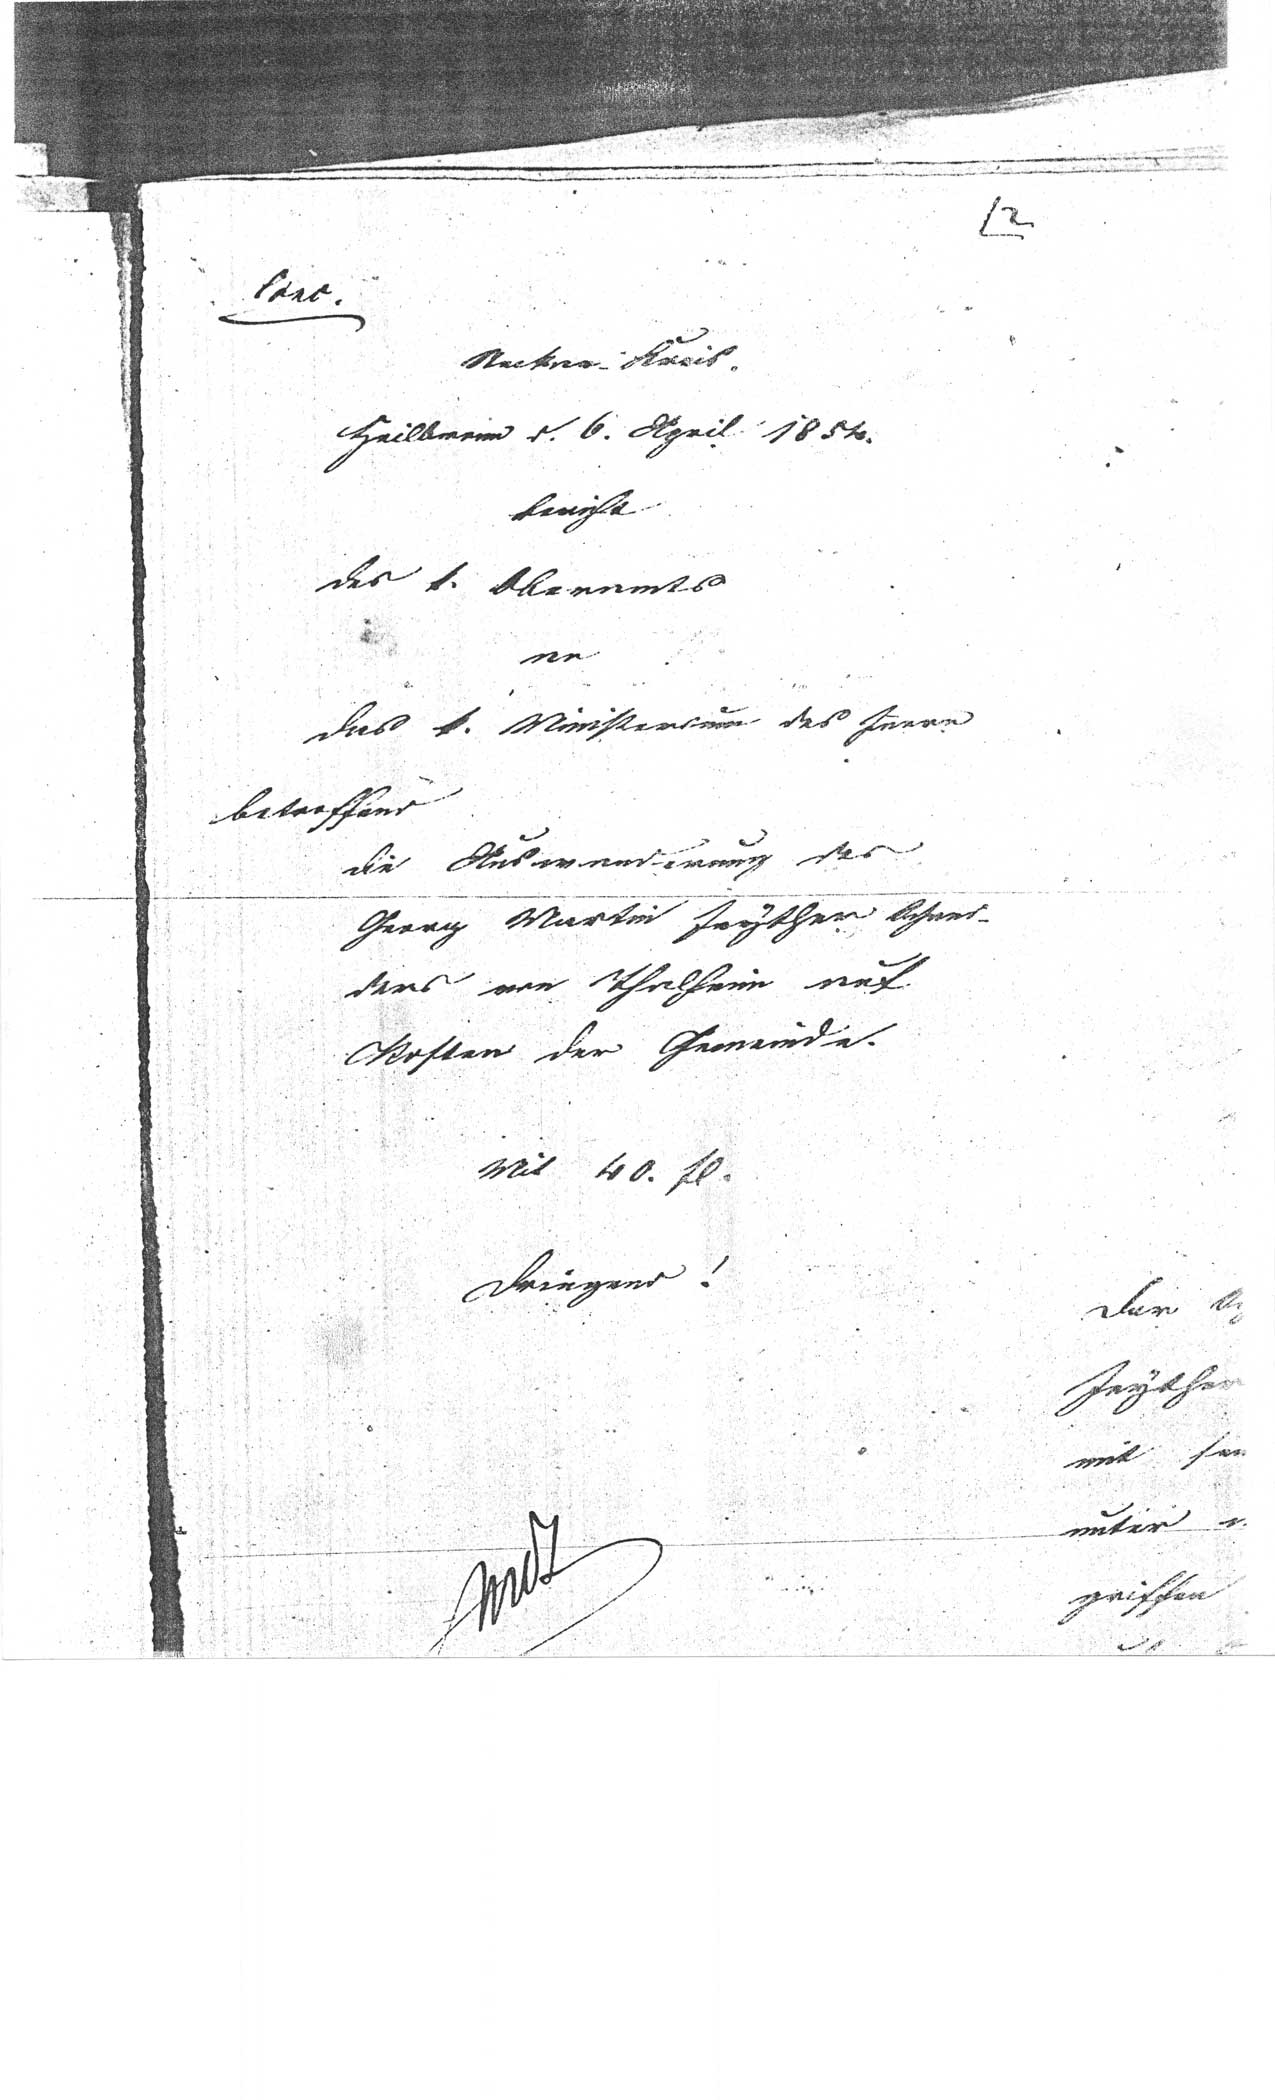 12
Conc.
Neckar-Kreis.
Heilbronn d. 6. April 1854.
Bericht
des k. Oberamts
an
das k. Ministerium des Innern
betreffend
die Auswanderung des
Georg Martin Schnei-
ders von Thalheim auf
Kosten der Gemeinde.
Mit 40. fl.
Dringend!
Der
mit
unter
griffen